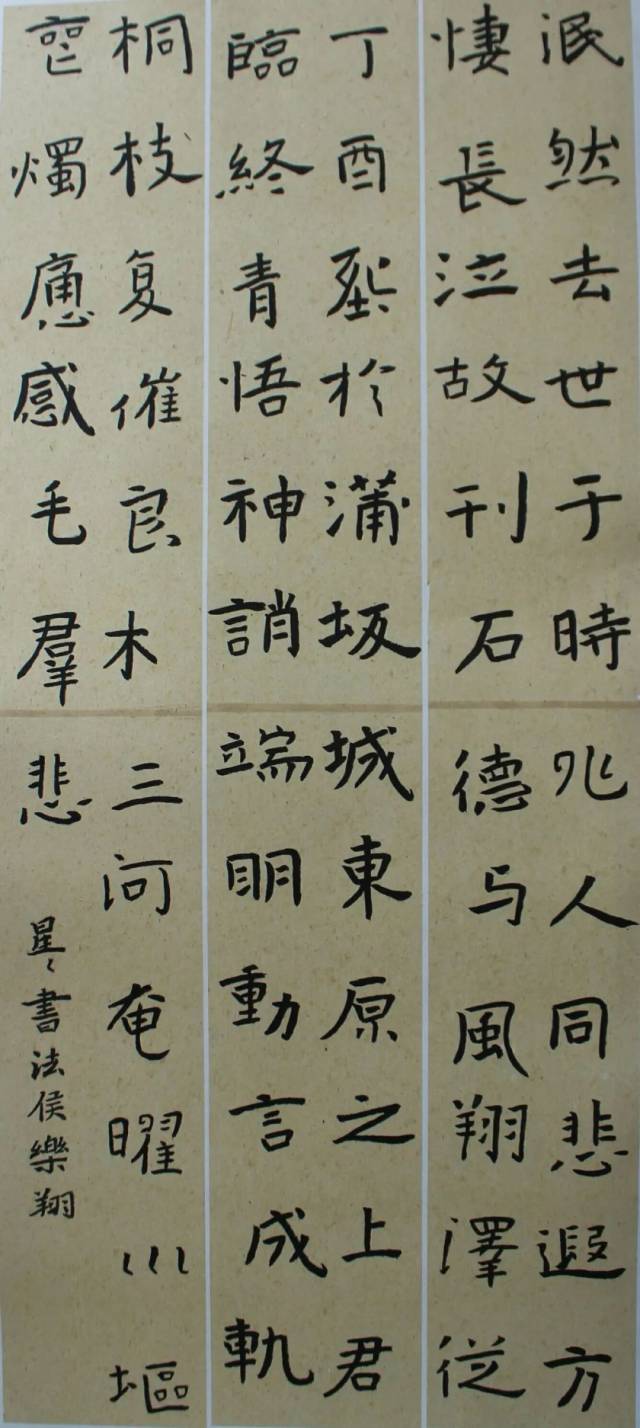 泯然去世于時兆人同悲遐方
悽長泣故刊石德与風翔澤從
丁酉塟於蒲坂城東原之上君
臨終青悟神誚端明動言成軌
桐枝复催良木三河奄曜川塸
燭應感毛羣悲
星〻書法侯樂翔